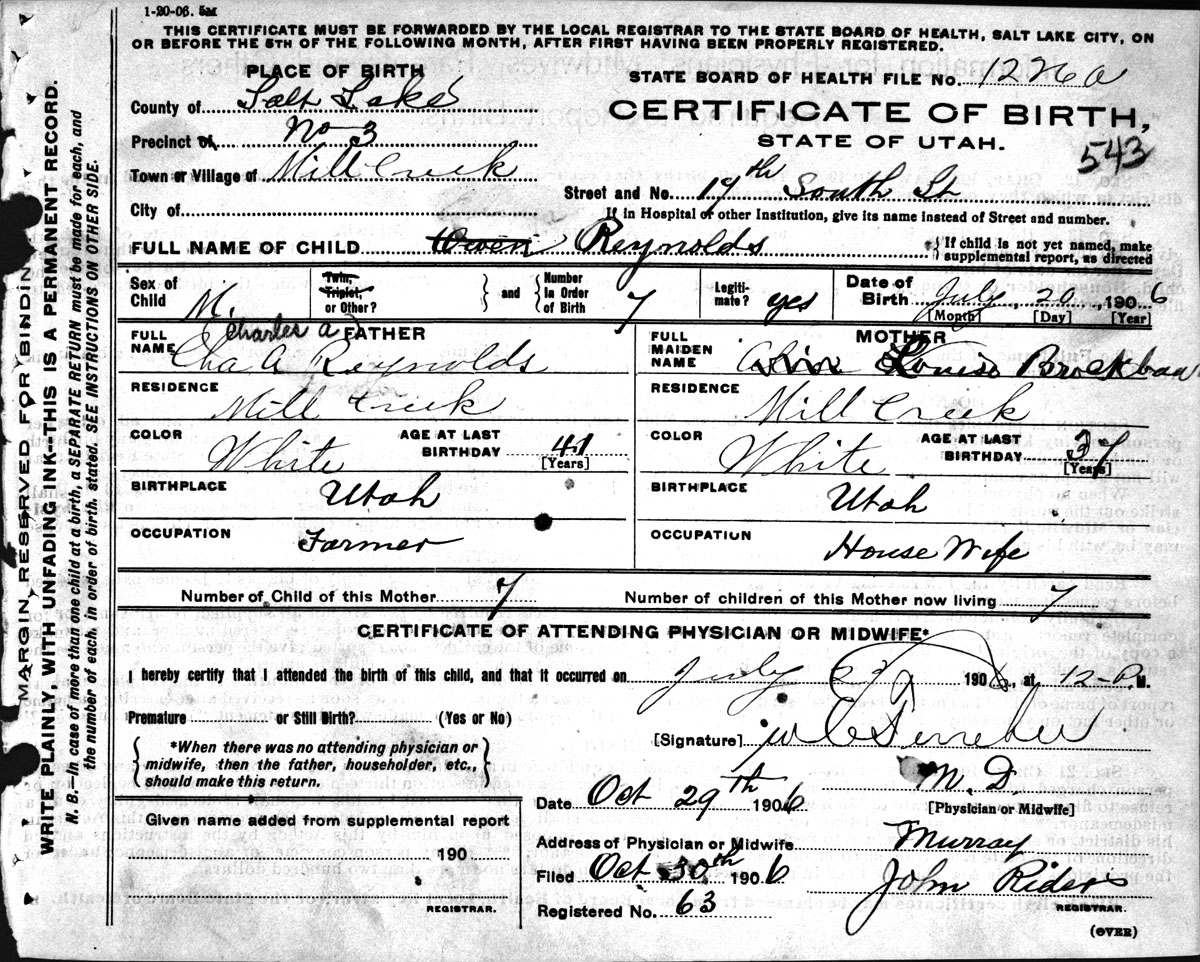 1-20-06. 5M
THIS CERTIFICATE MUST BE FORWARDED BY THE LOCAL REGISTRAR TO THE STATE BOARD OF HEALTH, SALT LAKE CITY, ON
OR BEFORE THE 5TH OF THE FOLLOWING MONTH, AFTER FIRST HAVING BEEN PROPERLY REGISTERED.
PLACE OF BIRTH
STATE BOARD OF HEALTH FILE No. 1226a
County of Salt Lake
CERTIFICATE OF BIRTH,
Precinct of No 3
STATE OF UTAH.
543
Town or Village of Mill Creek
Street and No. 17th South St
City of
If in Hospital or other Institution, give its name instead of Street and number.
FULL NAME OF CHILD Owen Reynolds
If child is not yet named, make supplemental report, as directed
Sex of Child M.
Twin, Triplet, or Other? and Number in Order of Birth 7
Legitimate? yes
Date of Birth July 20 1906
[Month] [Day] [Year]
FATHER
FULL NAME Charles A
Cha A Reynolds
RESIDENCE
Mill Creek
COLOR White
AGE AT LAST BIRTHDAY 41
[Years]
BIRTHPLACE
Utah
OCCUPATION
Farmer
MOTHER
FULL MAIDEN NAME Louise Brockban
RESIDENCE
Mill Creek
COLOR White
AGE AT LAST BIRTHDAY 37
[Years]
BIRTHPLACE
Utah
OCCUPATION
House Wife
Number of Child of this Mother 7
Number of children of this Mother now living 7
CERTIFICATE OF ATTENDING PHYSICIAN OR MIDWIFE*
I hereby certify that I attended the birth of this child, and that it occurred on July 1906, at 12-P. M.
Premature or Still Birth? (Yes or No)
[Signature]
*When there was no attending physician or
midwife, then the father, householder, etc.,
should make this return.
M. D.
[Physician or Midwife]
Date Oct 29th 1906
Given name added from supplemental report
190
REGISTRAR.
Address of Physician or Midwife Murray
Filed Oct 30th 1906
John Riders
REGISTRAR.
Registered No. 63
(OVER)
MARGIN RESERVED FOR BINDING
WRITE PLAINLY, WITH UNFADING INK--THIS IS A PERMANENT RECORD.
N. B.—In case of more than one child at a birth, a SEPARATE RETURN must be made for each, and
the number of each, in order of birth, stated. SEE INSTRUCTIONS ON OTHER SIDE.